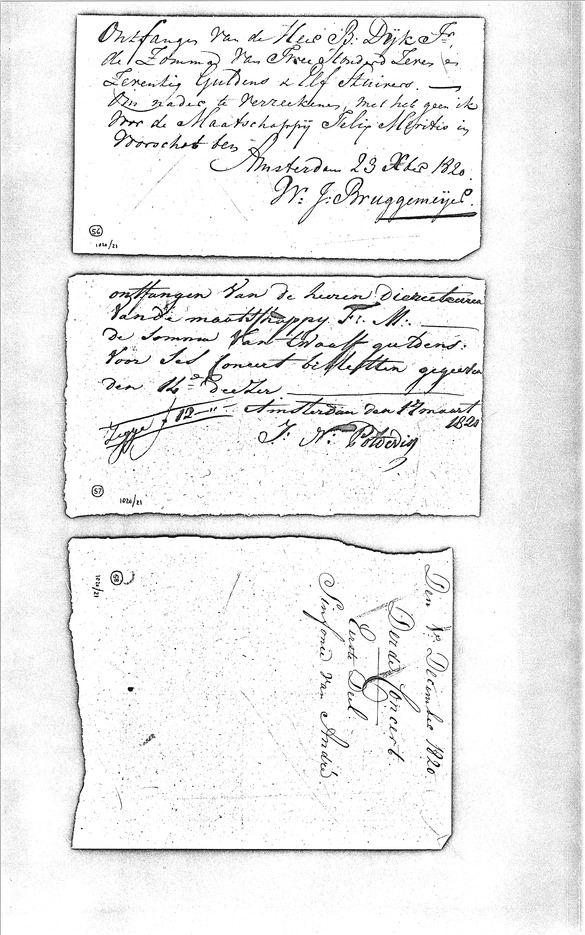 Ontfangen van de Heer B: Dÿk Jr,
de Zomma van Twee Honderd Zeven en
Zeventig Guldens & Elf Stuivers. —
Om nader te Verreekenen, met het geen ik
voor de Maatschappÿ Felix Meritis in
Voorschot ben
Amsterdam 23 Xber 1820.
W: J: Bruggemeÿer.
56
1020/21
ontfangen van de heeren direckteuren
van de maatschappy F: M:
de somma van twaalf guldens:
voor Ses Concert billetten gegeven
den 14e deezer
Zegge f 12-"-
Amsterdam den 17 maart
1820
J: N:
57
1020/21
Den 8e December 1820
Derde Concert
Eerste Deel.
Sinfonie van André.
58
1020/21